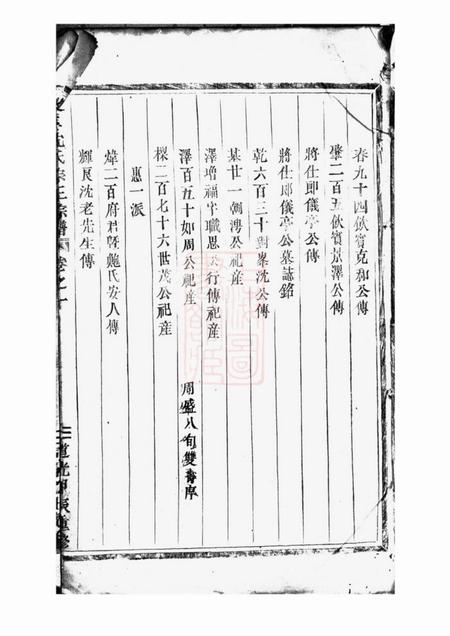 春九十四飲賓克和公傳
肇二百五飲賓景澤公傳
將仕郎儀亭公傳
將仕郎儀亭公墓誌銘
乾六百三十對峯沈公傳
某廿一朝鴻公祀産
澤增福字職思公行傳祀産
澤百五十如周公祀産
周盛八旬雙壽序
樑二百七十六世茂公祀産
惠一派
煒二百府君曁鮑氏安人傳
輝良沈老先生傳
沈氏宗正宗譜
卷之一
道光甲辰重修